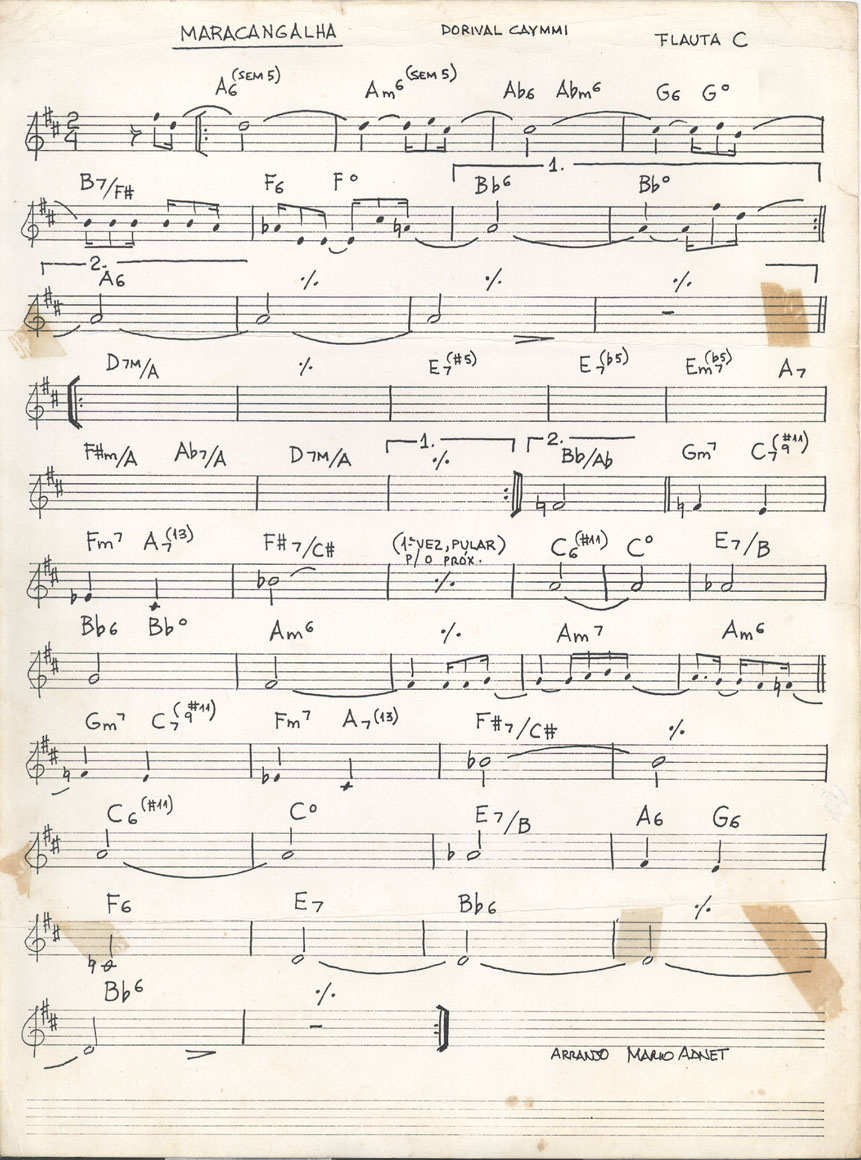 MARACANGALHA DORIVAL CAYMMI FLAUTA C
A6(SEM 5) Am6(SEM 5) Ab6 Abm6 G6 G°
2/4
1.
B7/F# F6 F° Bb6 Bb°
2.
A6 ٪ ٪ ٪
D7M/A ٪ E7(#5) E7(b5) Em7(b5) A7
F#m/A Ab7/A D7M/A 1. ٪ 2. Bb/Ab Gm7 C7 9(#11)
Fm7 A7(13) F#7/C# (1ª VEZ, PULAR) C6(#11) C° E7/B
P/ O PRÓX. ٪
Bb6 Bb° Am6 ٪ Am7 Am6
Gm7 C7 9(#11) Fm7 A7(13) F#7/C# ٪
C6(#11) C° E7/B A6 G6
F6 E7 Bb6 ٪
Bb6 ٪
ARRANJO MARIO ADNET